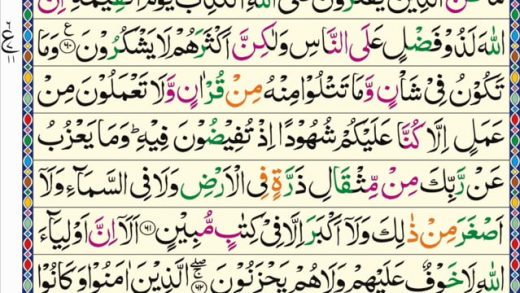 اللهَ لَذُوْ فَضْلٍ عَلَى النَّاسِ وَلٰكِنَّ اَكْثَرَهُمْ لَا يَشْكُرُوْنَ ﴿۶۰﴾ وَمَا
تَكُوْنُ فِىْ شَاْنٍ وَّمَا تَتْلُوْا مِنْهُ مِنْ قُرْاٰنٍ وَّلَا تَعْمَلُوْنَ مِنْ
عَمَلٍ اِلَّا كُنَّا عَلَيْكُمْ شُهُوْدًا اِذْ تُفِيْضُوْنَ فِيْهِ ؕ وَمَا يَعْزُبُ
عَنْ رَّبِّكَ مِنْ مِّثْقَالِ ذَرَّةٍ فِى الْاَرْضِ وَلَا فِى السَّمَآءِ وَلَاۤ
اَصْغَرَ مِنْ ذٰلِكَ وَلَاۤ اَكْبَرَ اِلَّا فِىْ كِتٰبٍ مُّبِيْنٍ ﴿۶۱﴾ اَلَاۤ اِنَّ اَوْلِيَآءَ
اللهِ لَا خَوْفٌ عَلَيْهِمْ وَلَا هُمْ يَحْزَنُوْنَ ﴿۶۲﴾ الَّذِيْنَ اٰمَنُوْا وَكَانُوْا